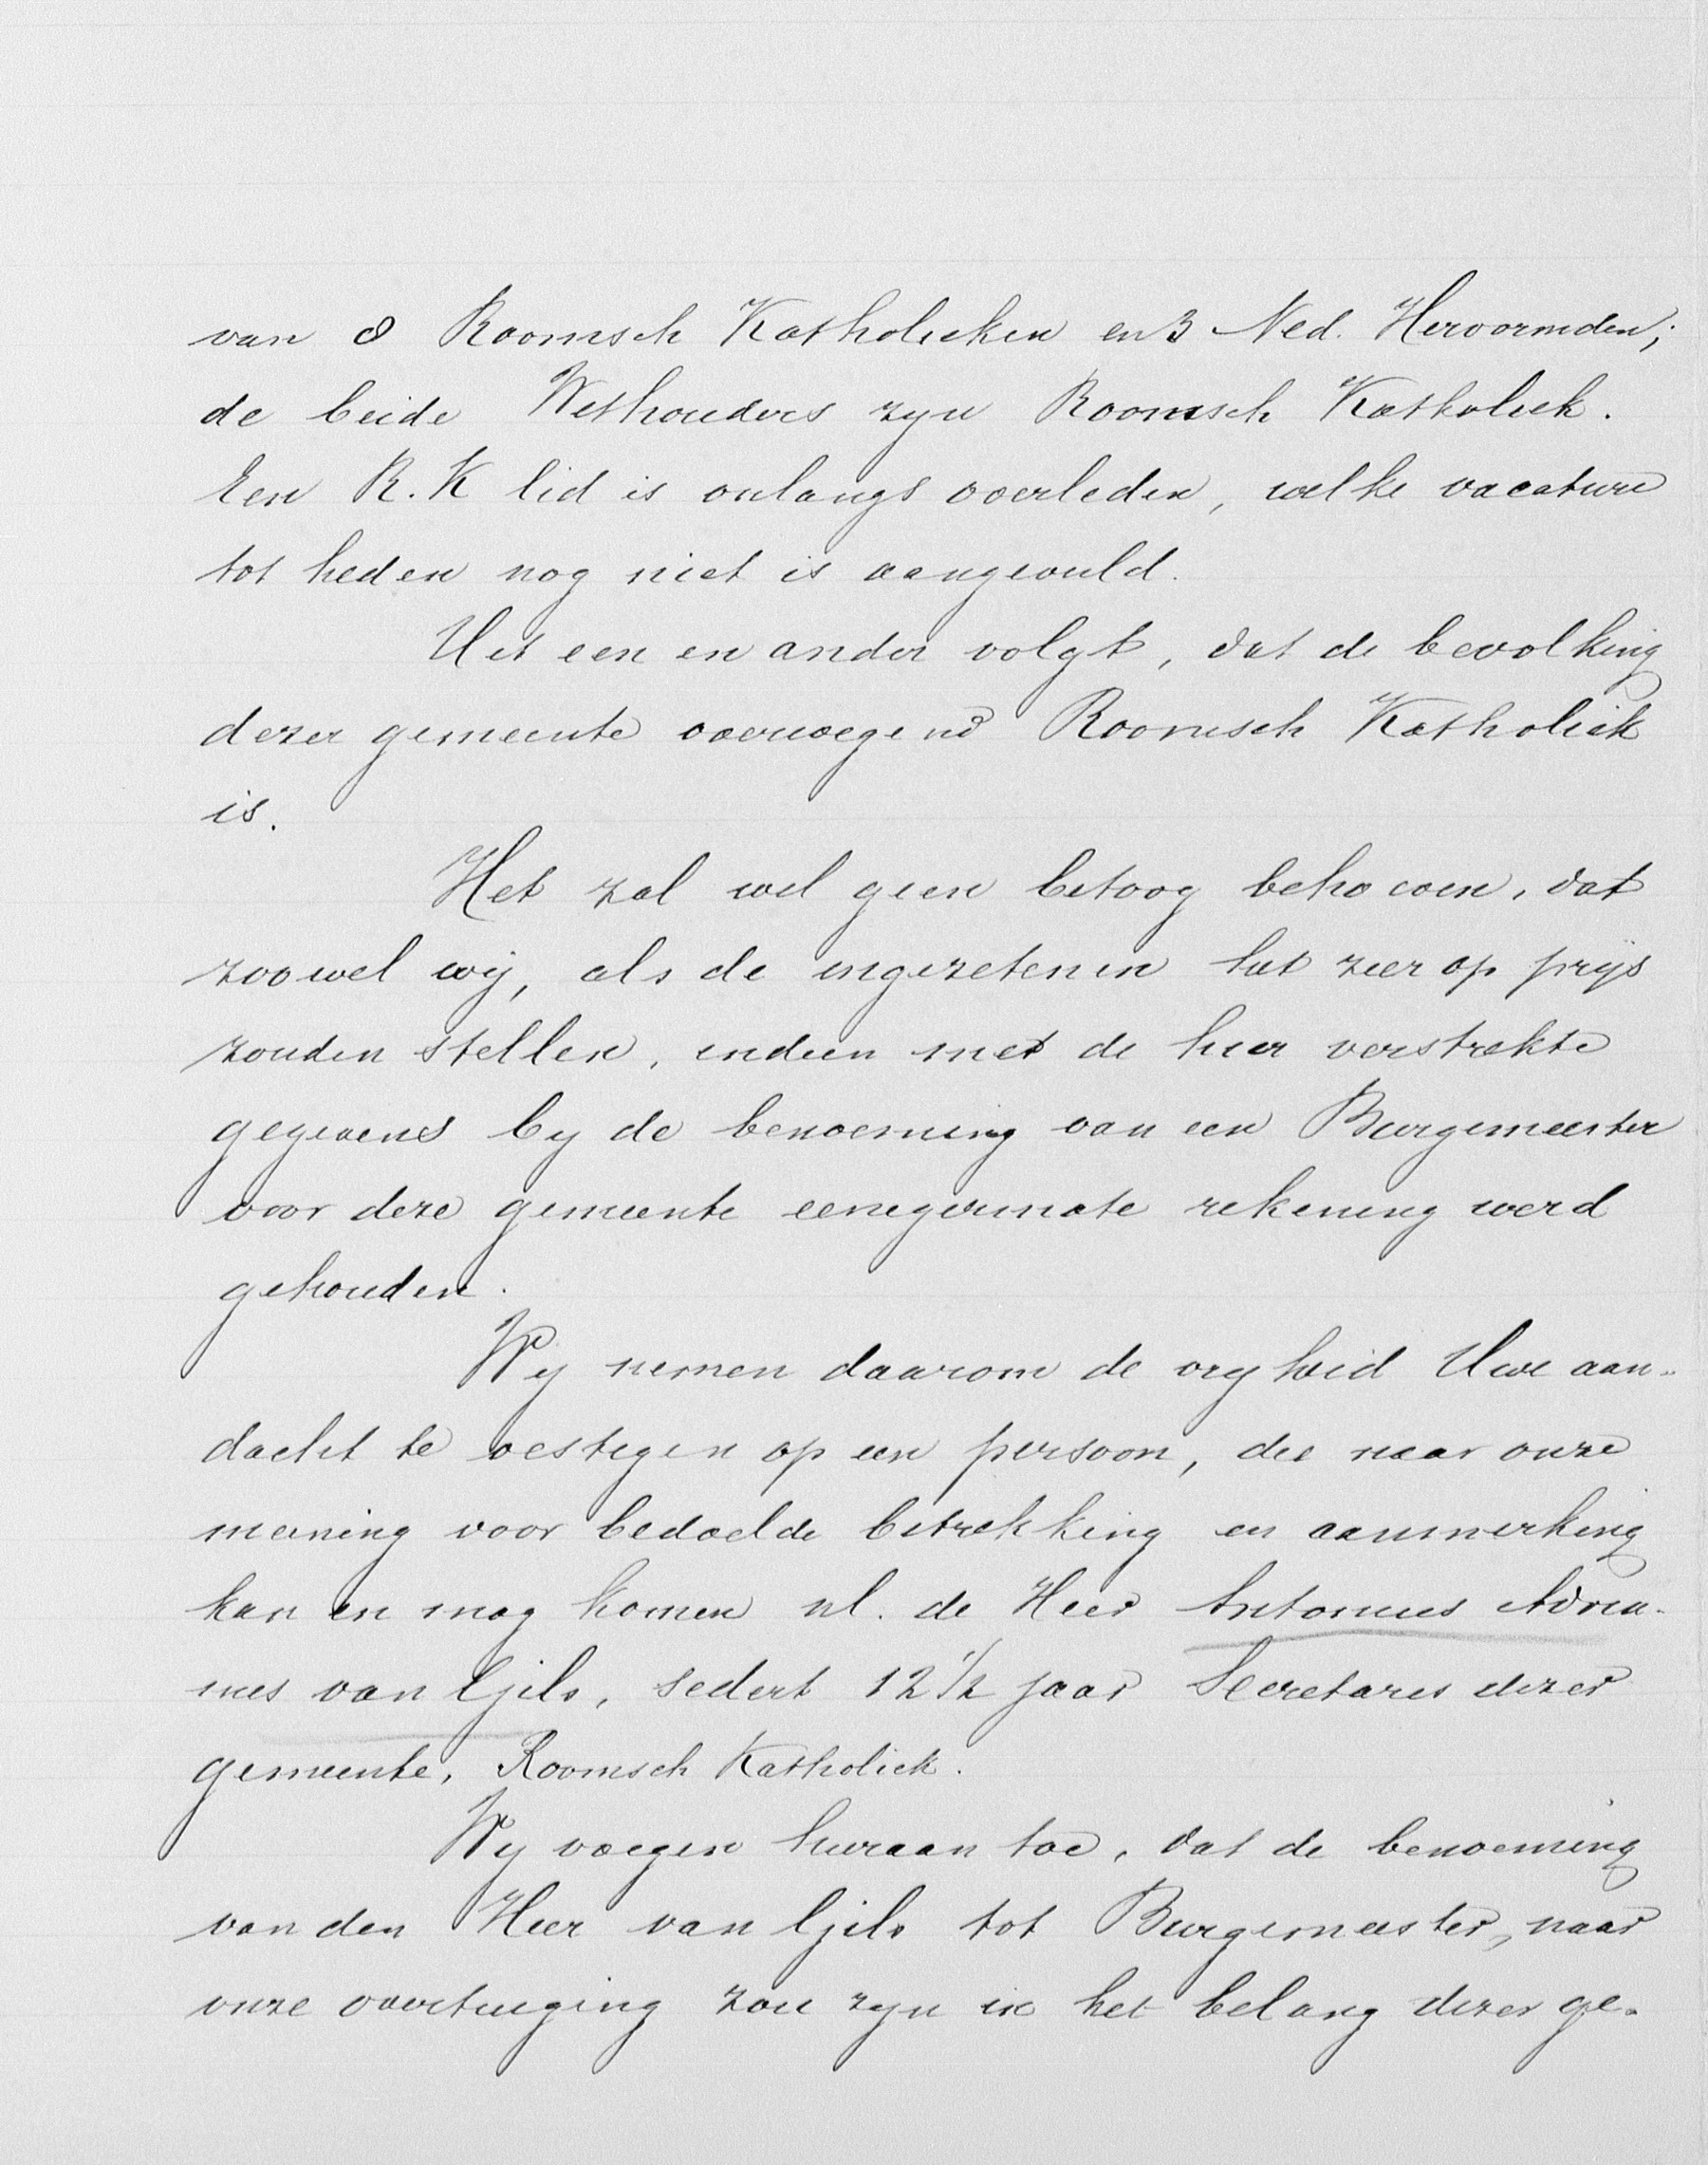 van 8 Roomsch Katholieken en 3 Ned. Hervormden;
de beide Wethouders zyn Roomsch Katholiek.
Een R.K lid is onlangs overleden, welke vacature
tot heden nog niet is aangevuld.
Uit een en ander volgt, dat de bevolking
dezer gemeente overwegend Roomsch Katholiek
is.
Het zal wel geen betoog behoeven, dat
zoowel wij, als de ingezetenen het zeer op prijs
zouden stellen, indien met de hier verstrekte
gegevens by de benoeming van een Burgemeester
voor deze gemeente eenigermate rekening werd
gehouden.
Wy nemen daarom de vryheid Uwe aan-
dacht te vestigen op een persoon, die naar onze
meening voor bedoelde betrekking in aanmerking
kan en mag komen nl. de Heer Antonius Adria-
nus van Gils, sedert 12 1/2 jaar Secretaris dezer
gemeente, Roomsch Katholiek.
Wy voegen hieraan toe, dat de benoeming
van den Heer van Gils tot Burgemeester, naar
onze overtuiging zou zyn in het belang dezer ge-